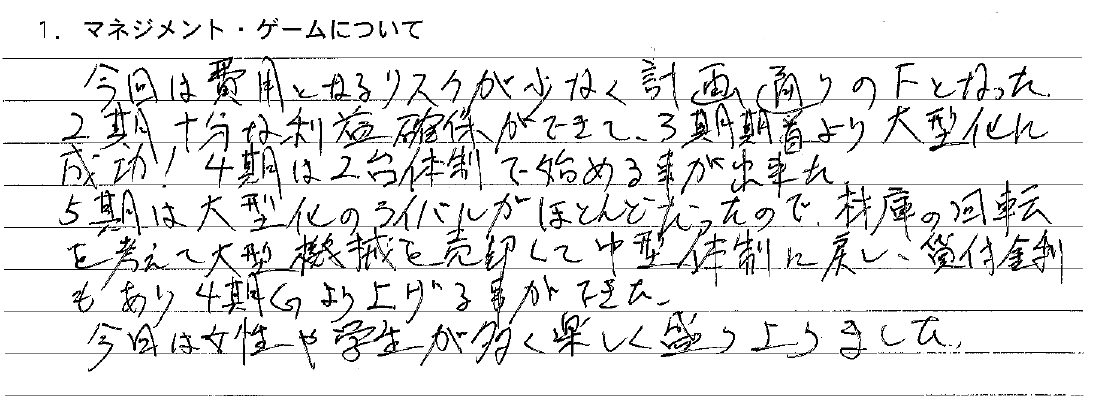 1. マネジメント・ゲームについて
今回は費用となるリスクが少なく計画通りの下となった。
2期十分な利益確保ができて、3期期首より大型化に
成功！4期は2台体制で始める事が出来た
5期は大型化のライバルがほとんどだったので、材庫の回転
を考えて大型機械を売却して中型体制に戻し、貸付金利
もあり4期Gより上げる事ができた。
今回は女性や学生が多く楽しく盛り上りました。